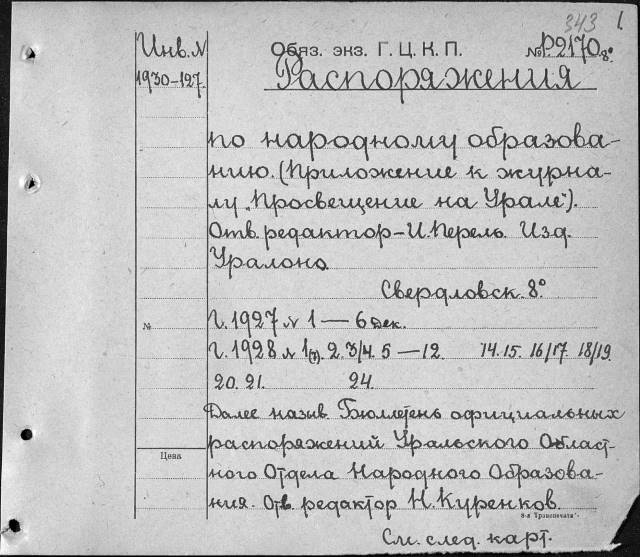 343 1.
Инв. №
1930-127.
Обяз. экз. Г. Ц. К. П. № Р.2170 8°
Распоряжения
по народному образова-
нию. (Приложение к журна-
лу „Просвещение на Урале").
Отв. редактор - И. Перель. Изд.
Уралоно.
Свердловск. 8°.
№
Г. 1927 № 1 — 6 дек.
Г. 1928 № 1(7). 2. 3/4. 5 — 12. 14. 15. 16/17. 18/19.
20. 21. 24.
Далее назыв. Бюллетень официальных
распоряжений Уральского Област-
Цена
ного Отдела Народного Образова-
ния. Отв. редактор Н. Куренков.
8-я „Транспечати".
См. след. карт.